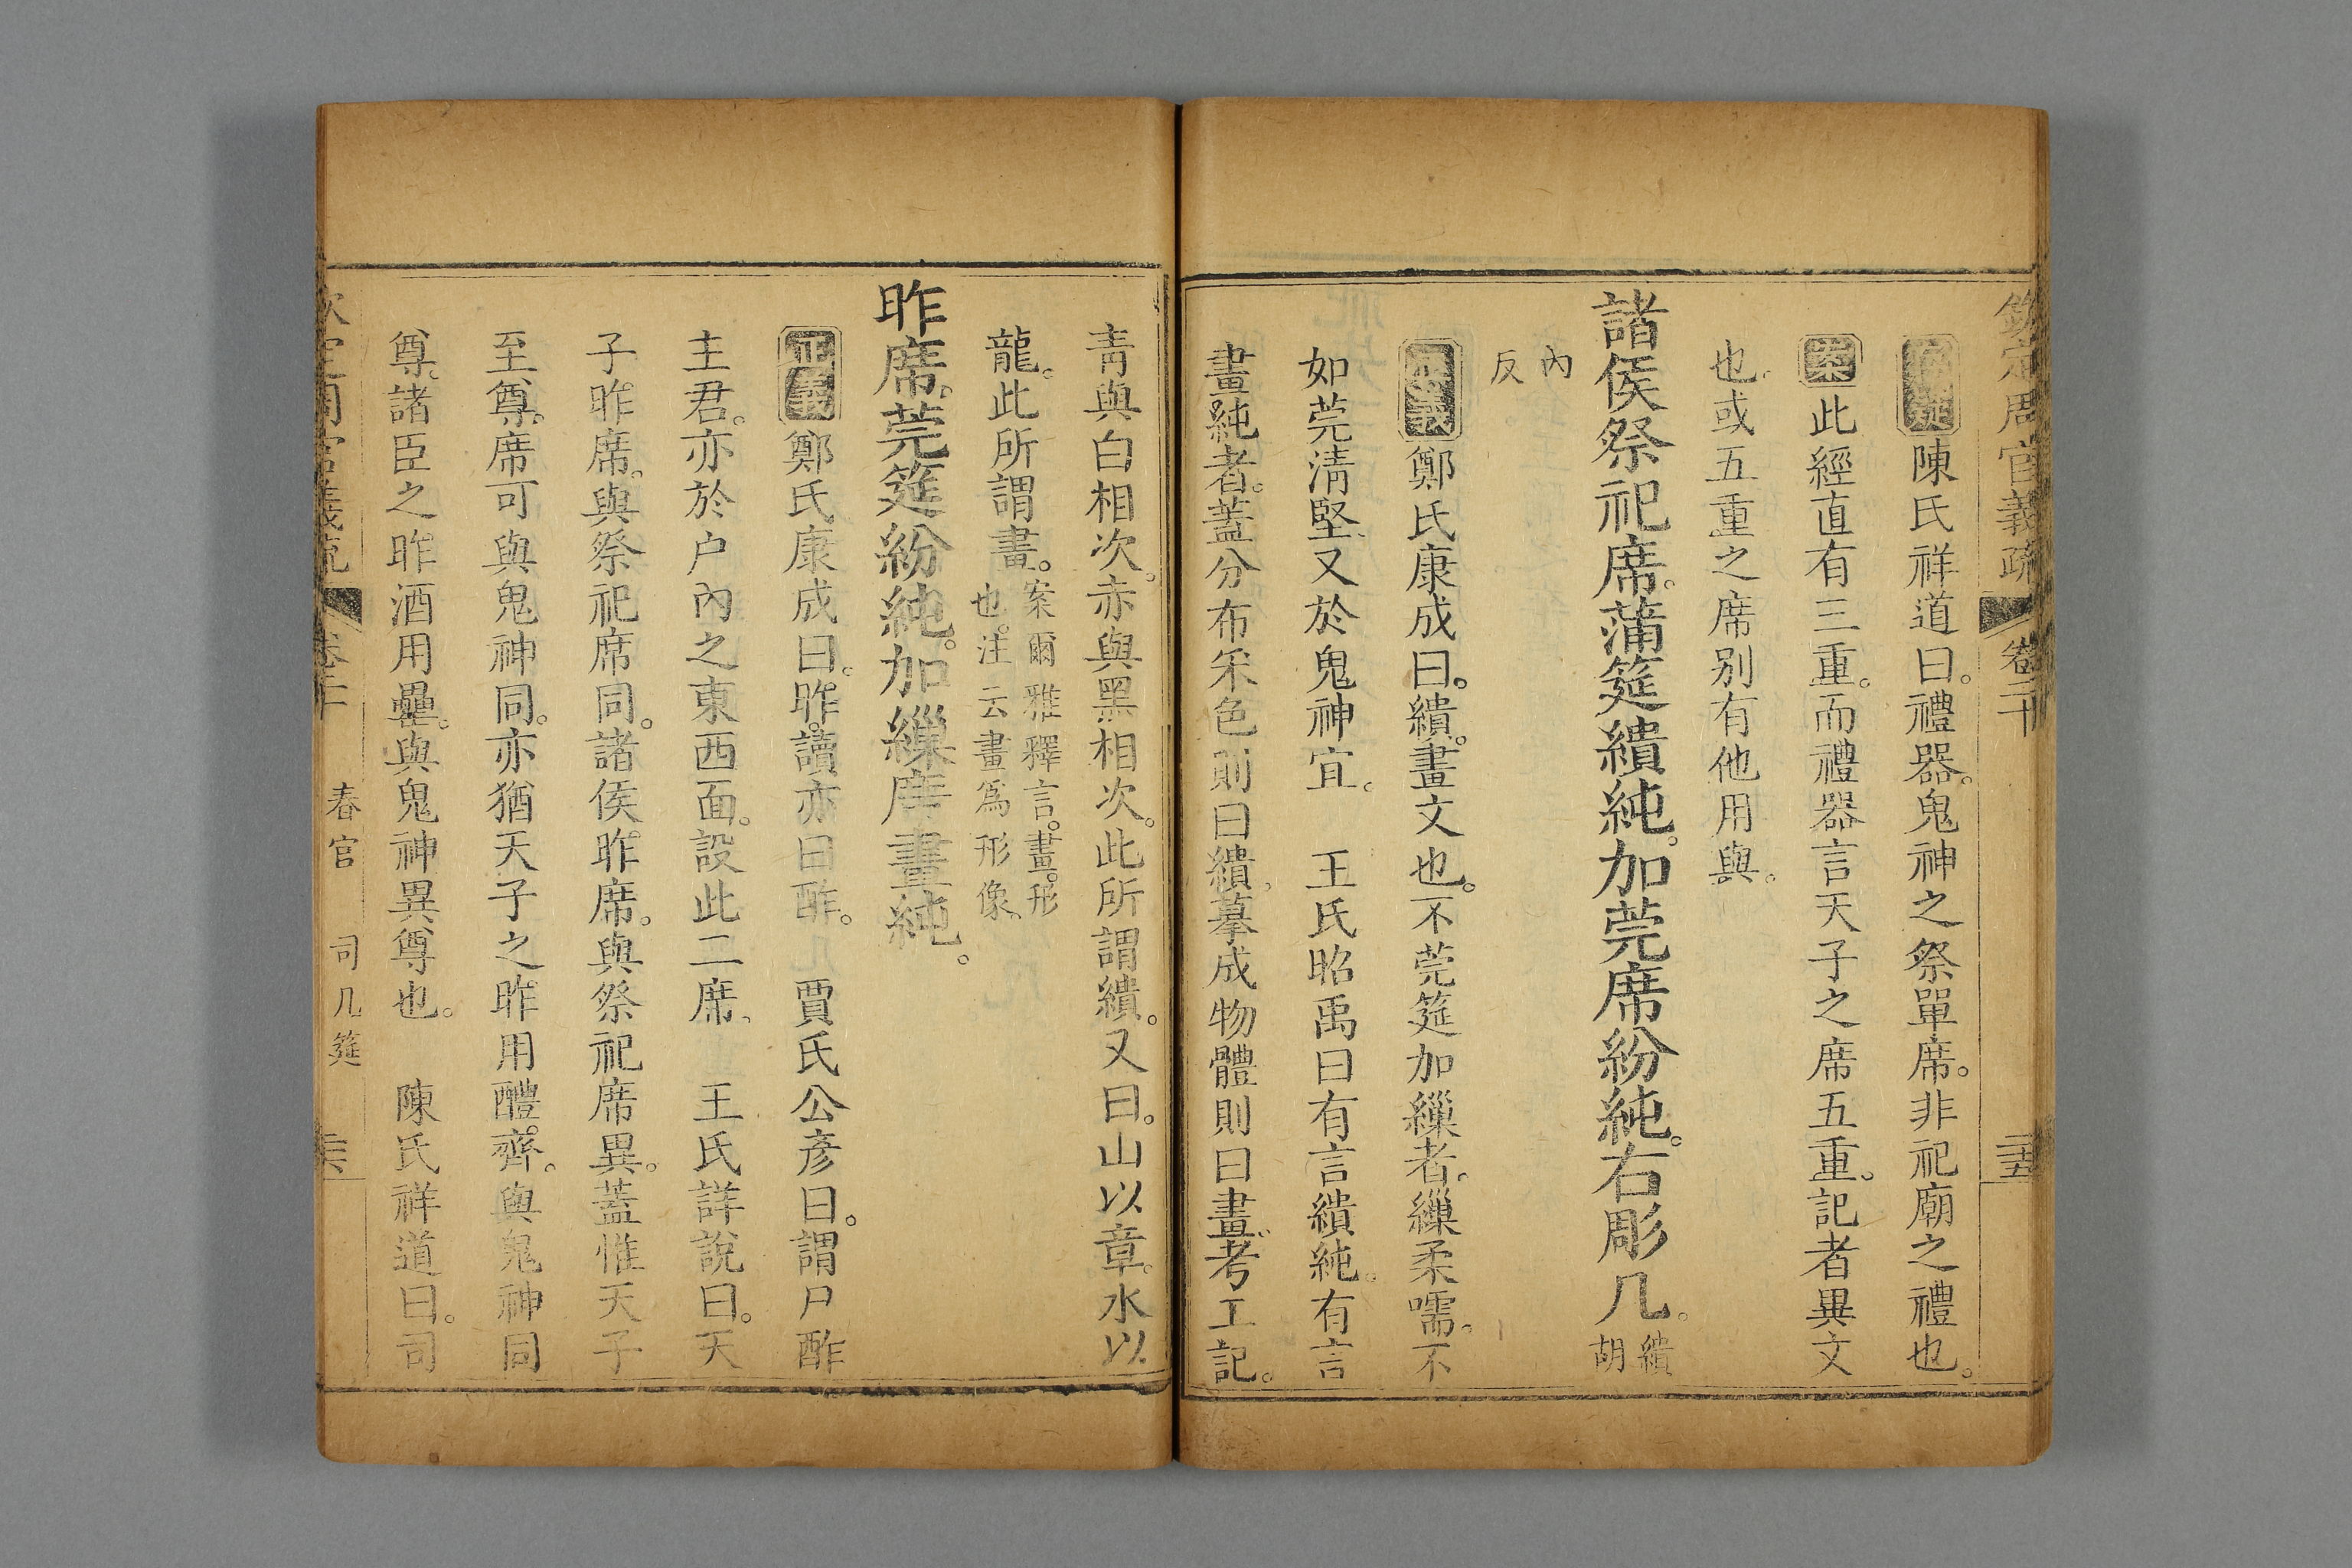 欽定周官義疏 卷二十 二十五
陳氏祥道曰。禮器。鬼神之祭單席。非祀廟之禮也。
案此經直有三重。而禮器言天子之席五重。記者異文
也。或五重之席別有他用與。
諸侯祭祀席。蒲筵繢純。加莞席紛純。右彫几。繢胡
內反
正義鄭氏康成曰。繢。畫文也。不莞筵加繅者。繅柔嚅。不
如莞清堅。又於鬼神宜。 王氏昭禹曰有言繢純。有言
畫純者。蓋分布采色則曰繢。摹成物體則曰畫。考工記。
青與白相次。赤與黑相次。此所謂繢。又曰。山以章。水以
龍。此所謂畫。案爾雅釋言。畫。形也。注云畫爲形像。
昨席。莞筵紛純。加繅席畫純。
正義鄭氏康成曰。昨。讀亦曰酢。 賈氏公彥曰。謂尸酢
主君。亦於户內之東西面。設此二席。 王氏詳說曰。天
子昨席。與祭祀席同。諸侯昨席。與祭祀席異。蓋惟天子
至尊。席可與鬼神同。亦猶天子之昨用醴齊。與鬼神同
尊。諸臣之昨酒用罍。與鬼神異尊也。 陳氏祥道曰。司
欽定周官義疏 卷二十 春官 司几筵